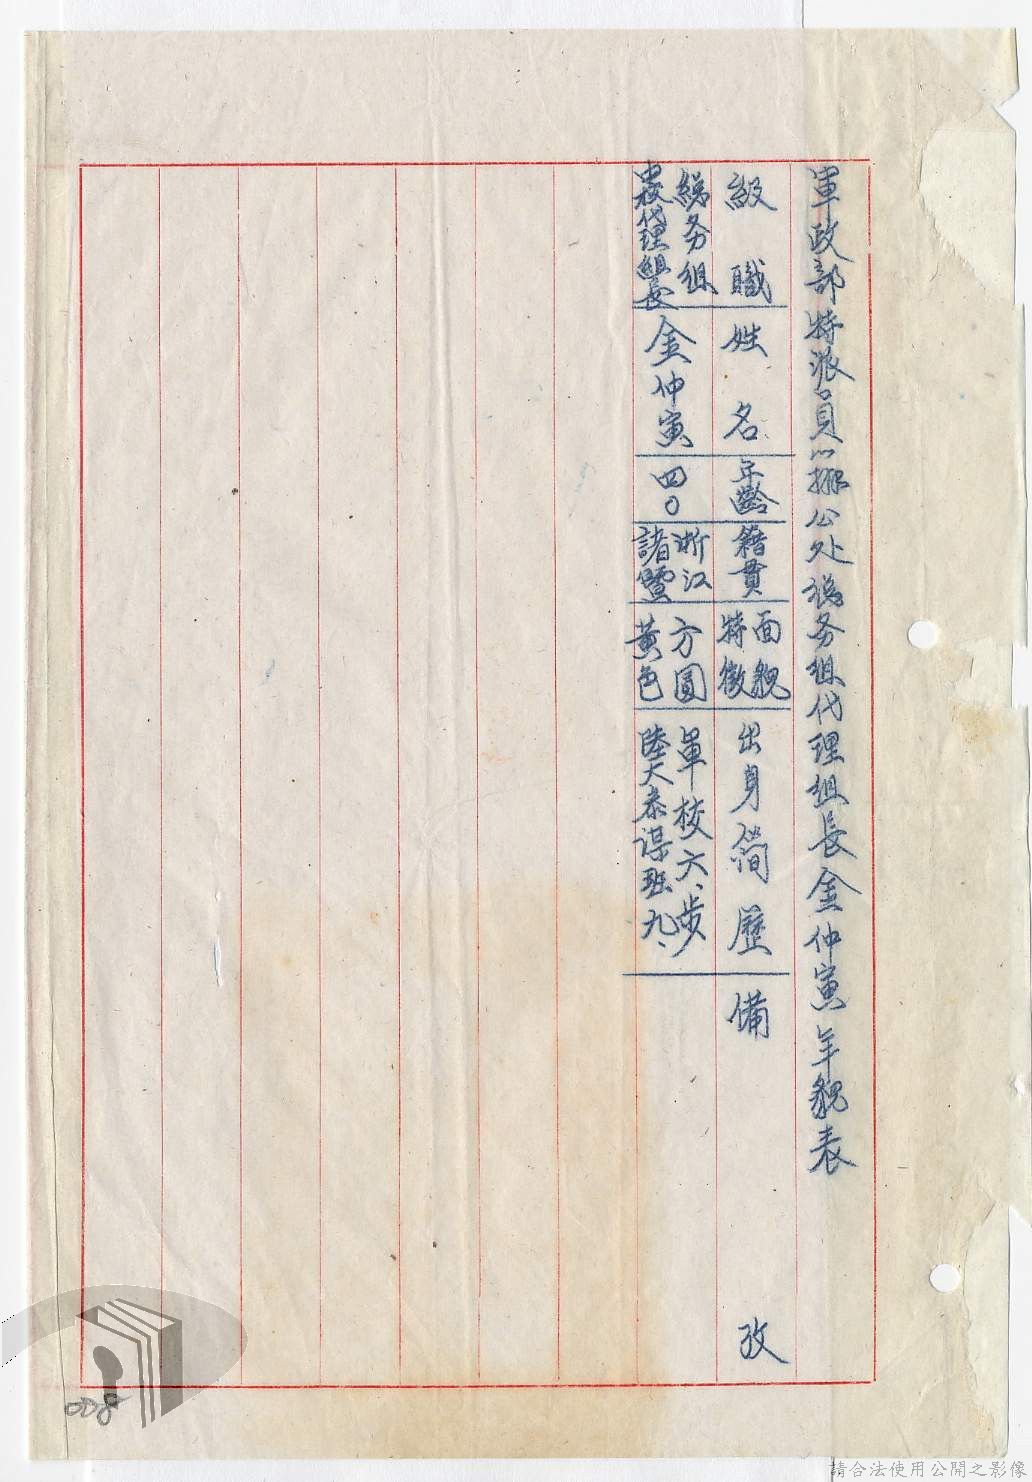 軍政部特派員辦公处總务組代理組長金仲寅年貌表
級職
姓名
年齡
籍貫
面貌
特徵
出身簡歷
備攷
總务組
代理組長
金仲寅
四〇
浙江
諸暨
方圓
黃色
軍校六、步
陸大参谋班九、
008
請合法使用公開之影像